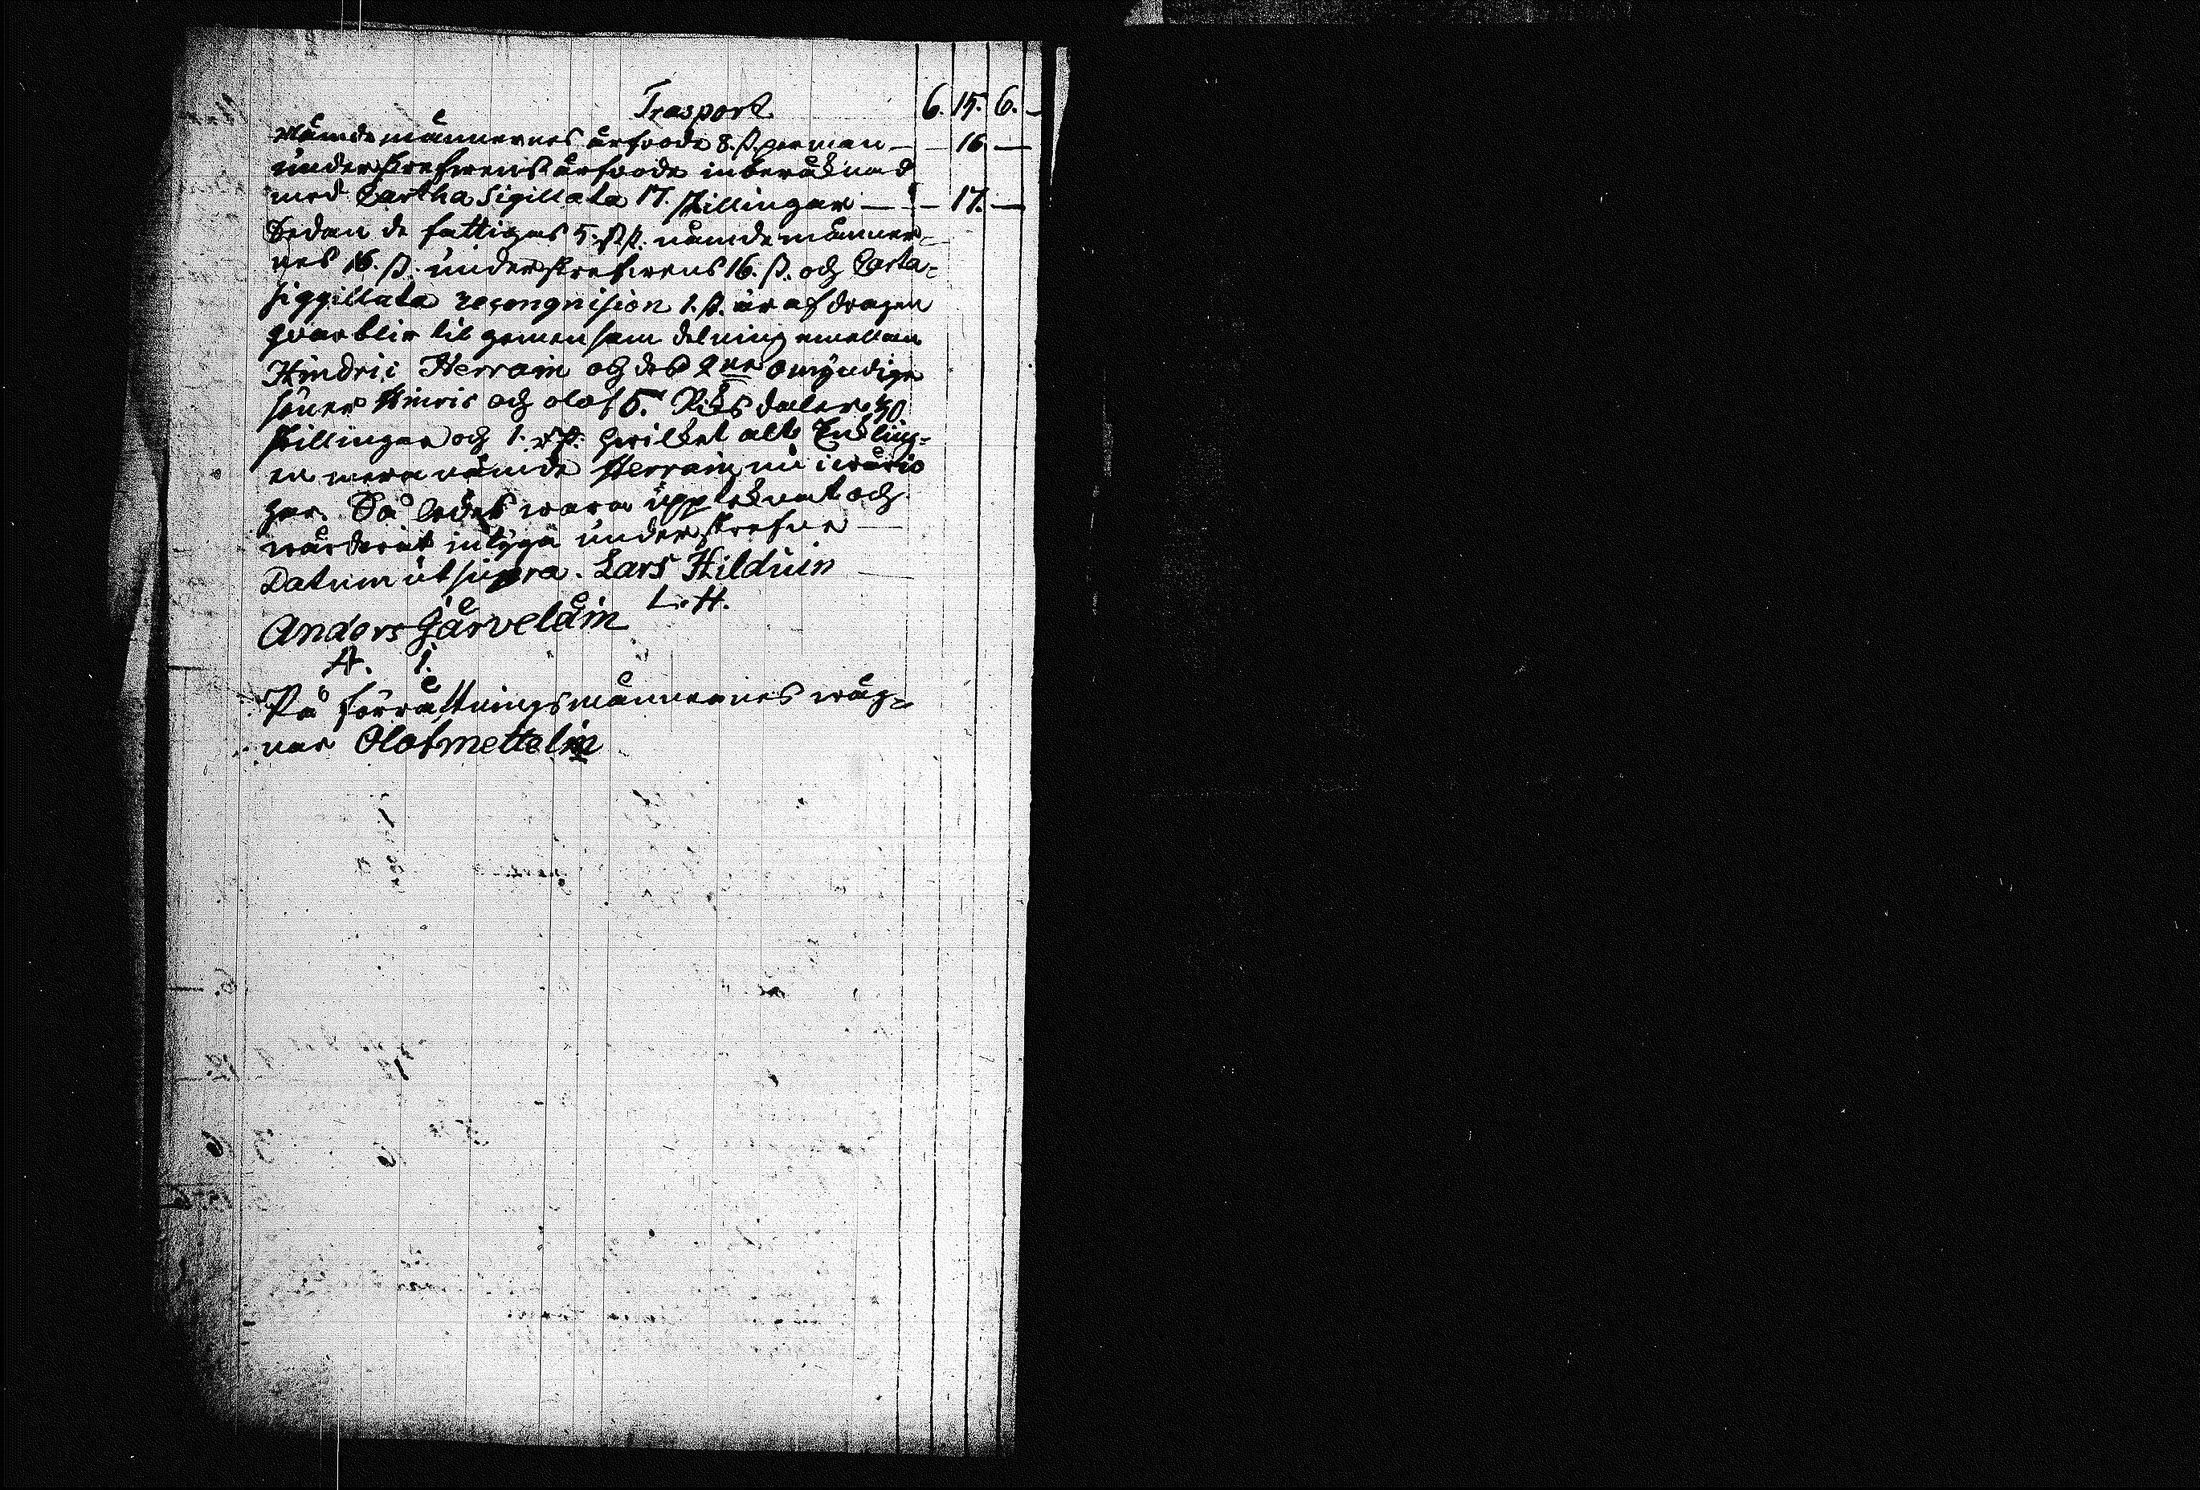 Trasport 6. 15. 6. —
Nämdemännernes arfvode 8. ß. per man — — 16. —
underskrefwens arfvode inberäknad
med Cartha Sigillata 17. skillingar — — 17. —
Sedan de fattigas 5. rst. nämdemänner-
nes 16. ß. underskrefwens 16. ß. och Carta-
siggillata recongnision 1. ß. är afdragen
qvarblir til gemensam delning emellan
Hindric Herrain och des 2ne omyndige
söner Hinric och olof 5. Riksdaler 30
skillingar och 1. rst. hwilket alt Enkling-
en mera nämde Herrain nu i wärjo
har. Så ledes wara uppteknat och
wärderat intyga underskrefne —
Datum ut supra. Lars Hilduin —
L. H.
Anders Järveläin
A. i.
På förrättningsmännernes wäg-
nar Olof mettelin